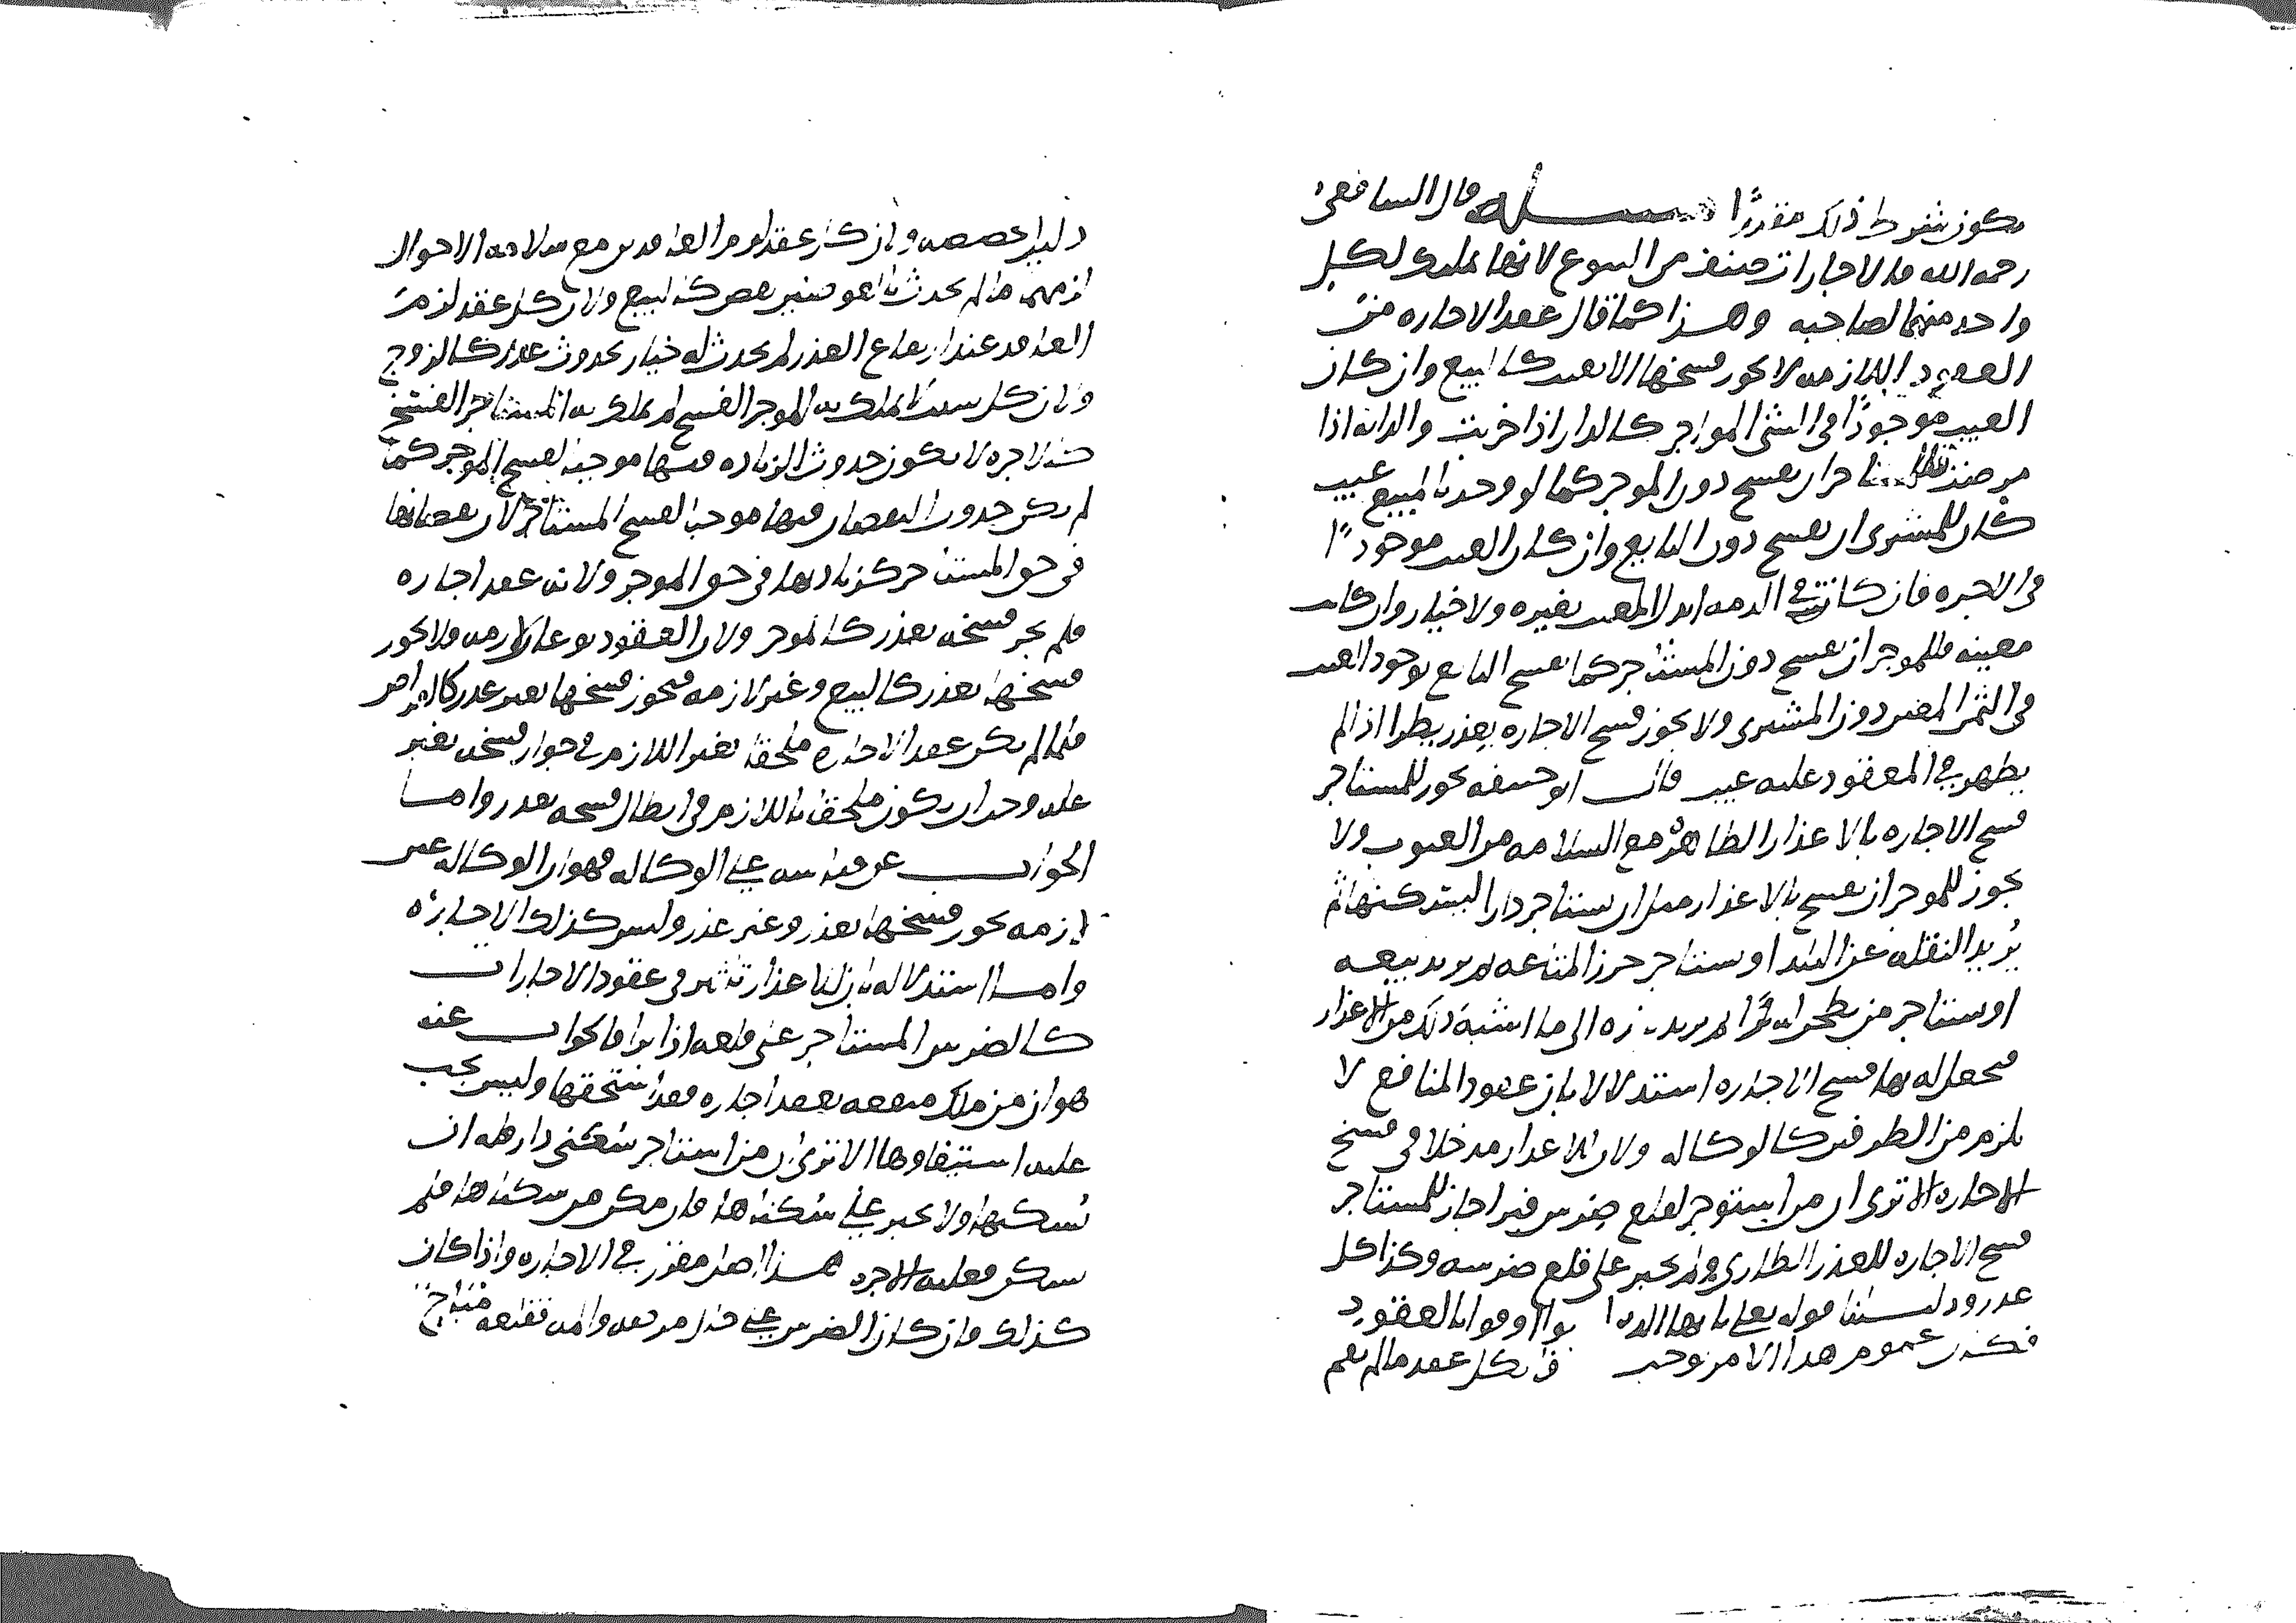 يكون شرط ذلك مقدرًا مسله قال الشافعي
رحمه الله فالاجارات صنف من البيوع لانها تمليك لكل
واحد منهما لصاحبه وهذا كما قال عقد الاجاره من
العقود اللازمه لا يجوز فسخها الا بعيب كالبيع وان كان
العيب موجودًا في الشي المواجر كالدار اذا خربت والدابه اذا
مرضت فللمستاجر ان يفسخ دون الموجر كما لو وجد بالمبيع عيب
كان للمشتري ان يفسخ دون البايع وان كان العيب موجودًا
في الاجره فان كانت في الذمه ابدل المعيب بغيره ولا خيار وان كانت
معينه فللموجر ان يفسخ دون المستاجر كما يفسخ البايع بوجود العيب
في الثمن المعين دون المشتري ولا يجوز فسخ الاجاره بعذر يطرا اذا لم
يظهر في المعقود عليه عيب قال ابو حنيفه يجوز للمستاجر
فسخ الاجاره بالاعذار الظاهره مع السلامه من العيوب ولا
يجوز للموجر ان يفسخ بالاعذار مثل ان يستاجر دارا ليسكنها ثم
يريد النقله عن البلد او يستاجر حرزا لمتاعه ثم يريد بيعه
او يستاجر من يطحن له برًا ثم يريد بذره الى ما اشبه ذلك من الاعذار
فجعل له بها فسخ الاجاره استدلالا بان عقود المنافع لا
يلزم من الطرفين كالوكاله ولان للاعذار مدخلا في فسخ
الاجاره الا ترى ان من استوجر لقلع ضرس فبرا جاز للمستاجر
فسخ الاجاره للعذر الطاري ولم يجبر على قلع ضرسه وكذا كل
عذر ودليلنا قوله تعالى يا ايها الذين امنوا اوفوا بالعقود
فكان عموم هذا الامر يوجب كل عقد ما لم يقم
دليل بتخصيصه ولانه كان عقد لزم العاقدين مع سلامه الاحوال
لزمهما ما لم يحدث بالعوضين نقص كالبيع ولان كل عقد لزم
العاقد عند ارتفاع العذر لم يحدث له خيار بحدوث عذر كالزوج
ولان كل سبب لا يملك به الموجر الفسخ لم يملك به المستاجر الفسخ
كالاجره لا يكون حدوث الزياده فيها موجبًا لفسخ الموجر كما
لم يكن حدوث النقصان فيها موجبًا لفسخ المستاجر لان نقصانها
في حق المستاجر كزيادتها في حق الموجر ولانه عقد اجاره
فلم يجز فسخه بعذر كالموجر ولان العقود نوعان لازمه فلا يجوز
فسخها بعذر كالبيع وغير لازمه فيجوز فسخها بغير عذر كالقراض
فلما لم يكن عقد الاجاره ملحقًا بغير اللازم في جواز فسخه بغير
عذر وجب ان يكون ملحقا باللازم في ابطال فسخه بعذر واما
الجواب عن قياسه على الوكاله فهو ان الوكاله غير
لازمه يجوز فسخها بعذر وغير عذر وليس كذلك الاجاره
واما استدلاله بان للاعذار تاثير في عقود الاجارات
كالضرس المستاجر على قلعه اذا برا فالجواب عنه
هو ان من ملك منفعه بعقد اجاره فقد استحقها وليس يجب
عليه استيفاوها الا ترى ان من استاجر سكنى دار فله ان
يسكنها ولا يجبر على سكناها فان مكن من سكناها فلم
يسكن فعليه الاجره هذا اصل مقرر في الاجاره واذا كان
كذلك فان كان الضرس على حال مرضه والمه فقلعه مباح